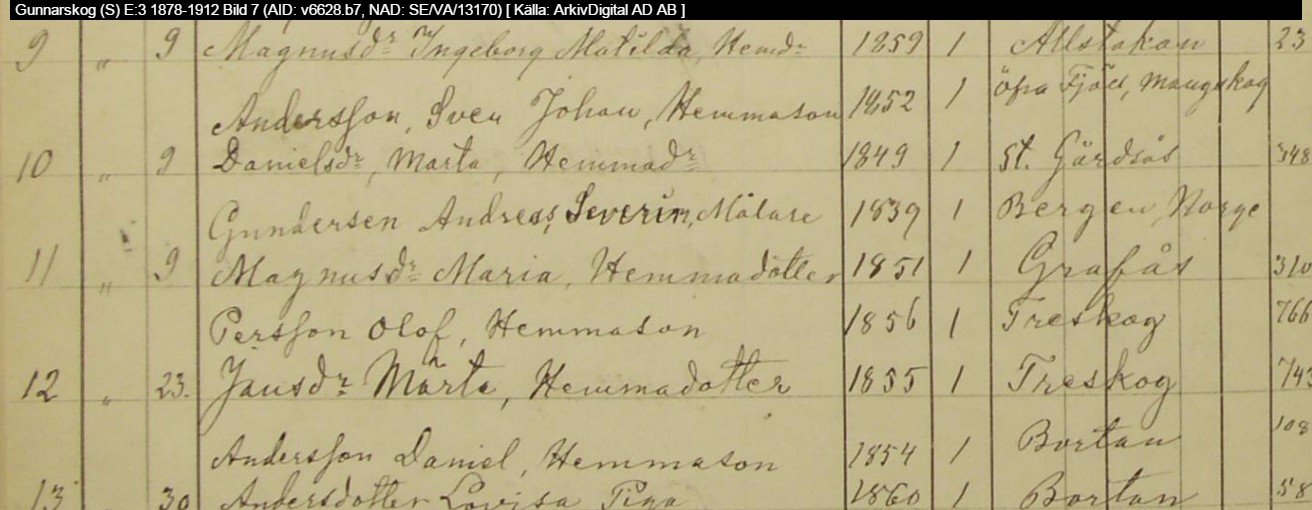 Gunnarskog (S) E:3 1878-1912 Bild 7 (AID: v6628.b7, NAD: SE/VA/13170) [ Källa: ArkivDigital AD AB ]
9 " 9 Magnusdr Ingeborg Matilda, Hemdr 1859 1 Allstakan 23
Andersson, Sven Johan, Hemmason 1852 1 Öfra Fjäll, Mangskog
10 " 9 Danielsdr, Marta, Hemmadr 1849 1 St. Gärdsås 348
Gundersen Andreas Severin, Målare 1839 1 Bergen, Norge
11 " 9 Magnusdr Maria, Hemmadotter 1851 1 Grafås 310
Persson Olof, Hemmason 1856 1 Treskog 766
12 " 23. Jansdr Märta, Hemmadotter 1855 1 Treskog 743
Andersson Daniel, Hemmason 1854 1 Bortan 108
13 " 30 Andersdotter Lovisa Piga 1860 1 Bortan 58